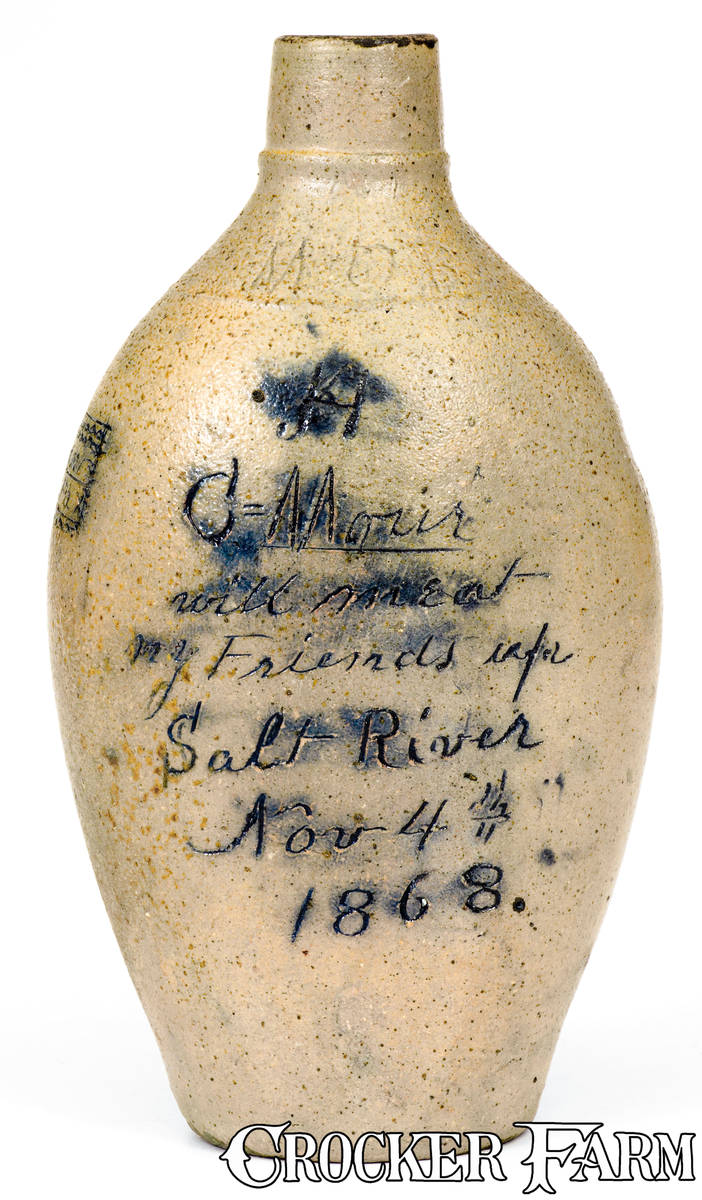 C=Moir
will meat
my Friends up
Salt River
Nov 4th
1868.
CROCKER FARM